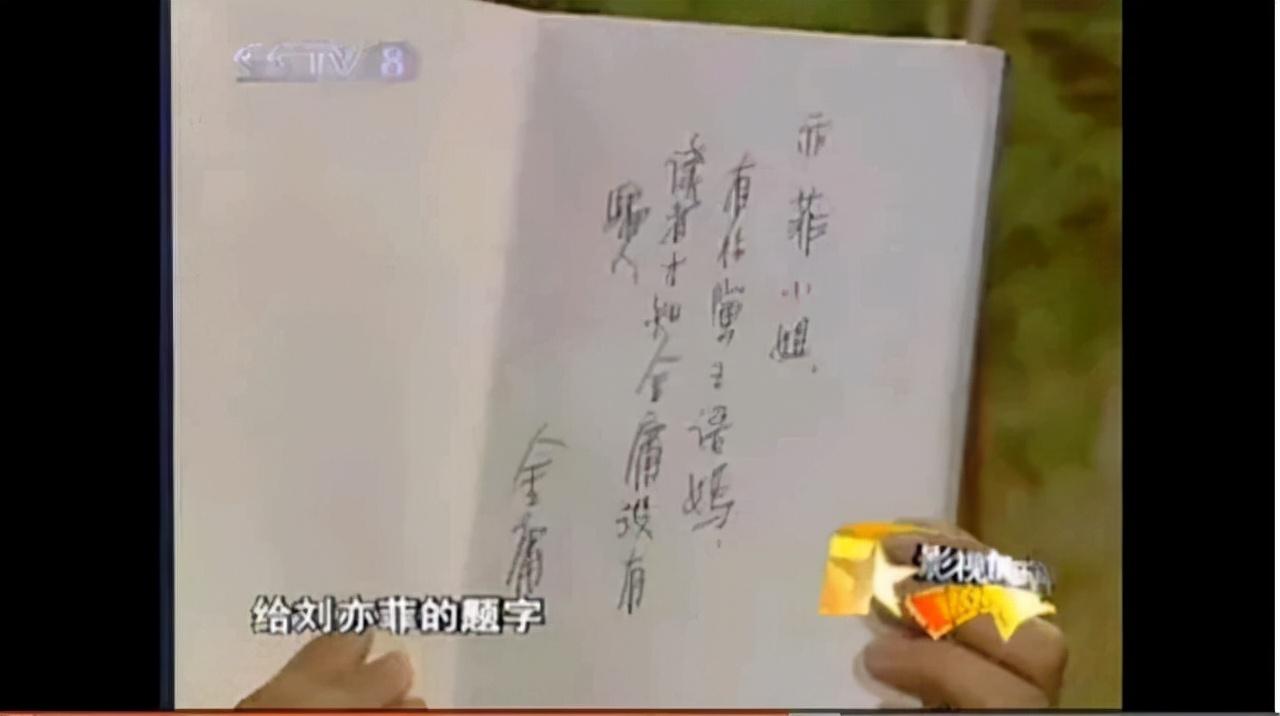 CCTV 8
亦菲小姐,
有你演王语嫣,
读者才知金庸没有
骗人
金庸
给刘亦菲的题字